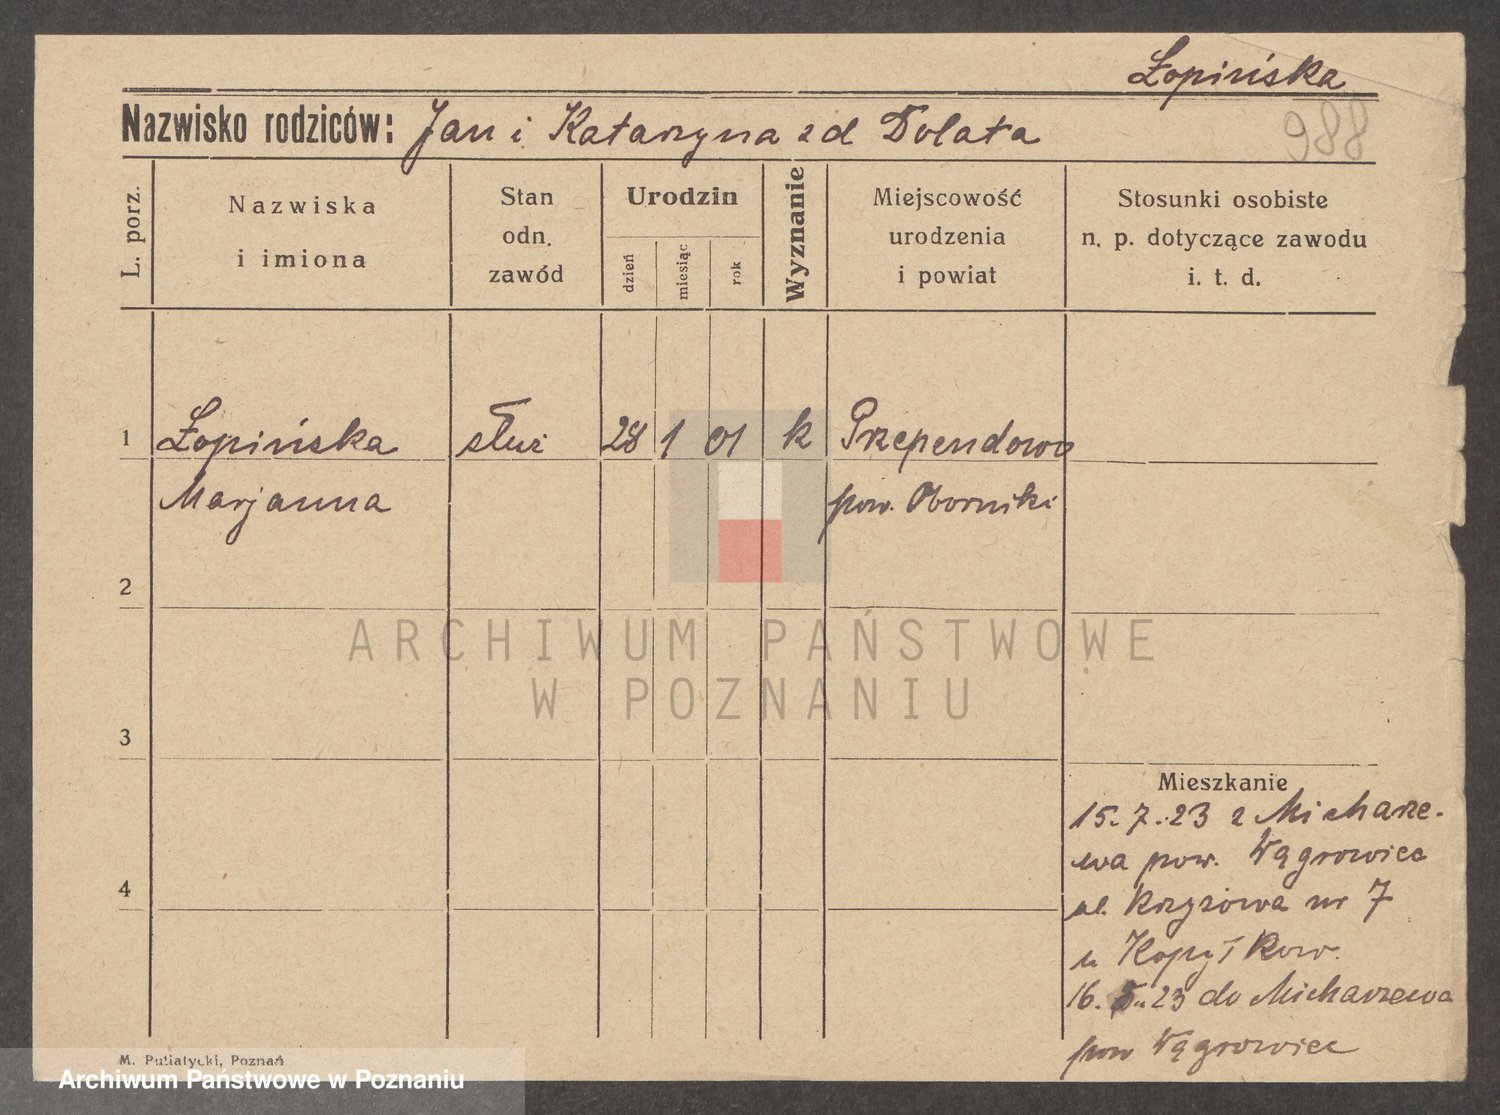 Łopińska
988
Nazwisko rodziców: Jan i Katarzyna zd Dolata
L. porz.
Nazwiska
i imiona
Stan
odn.
zawód
Urodzin
dzień
miesiąc
rok
Wyznanie
Miejscowość
urodzenia
i powiat
Stosunki osobiste
n. p. dotyczące zawodu
i. t. d.
1 Łopińska służ 28 1 01 k Przependowo
Marjanna pow. Oborniki
2
ARCHIWUM PAŃSTWOWE
W POZNANIU
3
Mieszkanie
15.7.23 z Micharze-
wa pow. Wągrowiec
4
ul. Krzyżowa nr 7
u Kopył Kow.
16. 23 do Micharzewa
pow Wągrowiec
M. Putiatycki, Poznań
Archiwum Państwowe w Poznaniu